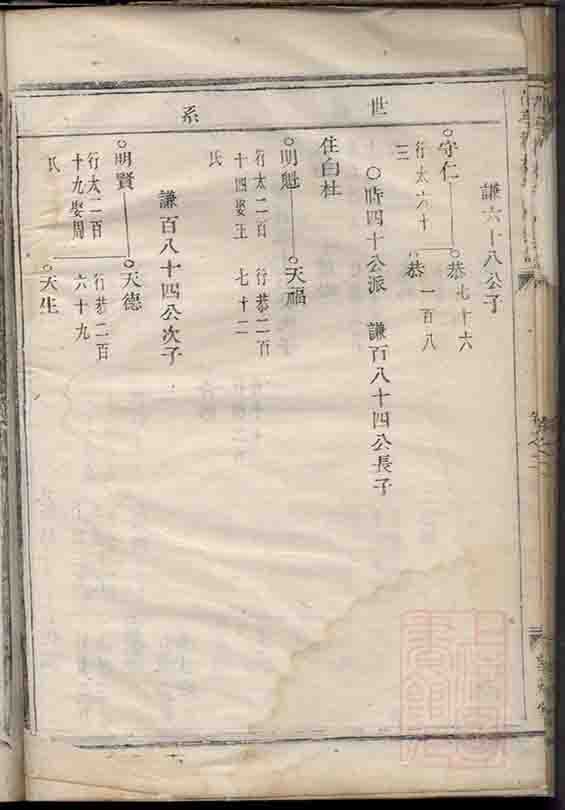 世系
謙六十八公子
守仁
行太六十
三
恭七十六
恭一百八
時四十公派 謙百八十四公長子
住白杜
明魁
行太二百
十四娶王
氏
天福
行恭二百
七十二
謙百八十四公次子
明賢
行太二百
十九娶周
氏
天德
行恭二百
六十九
天生